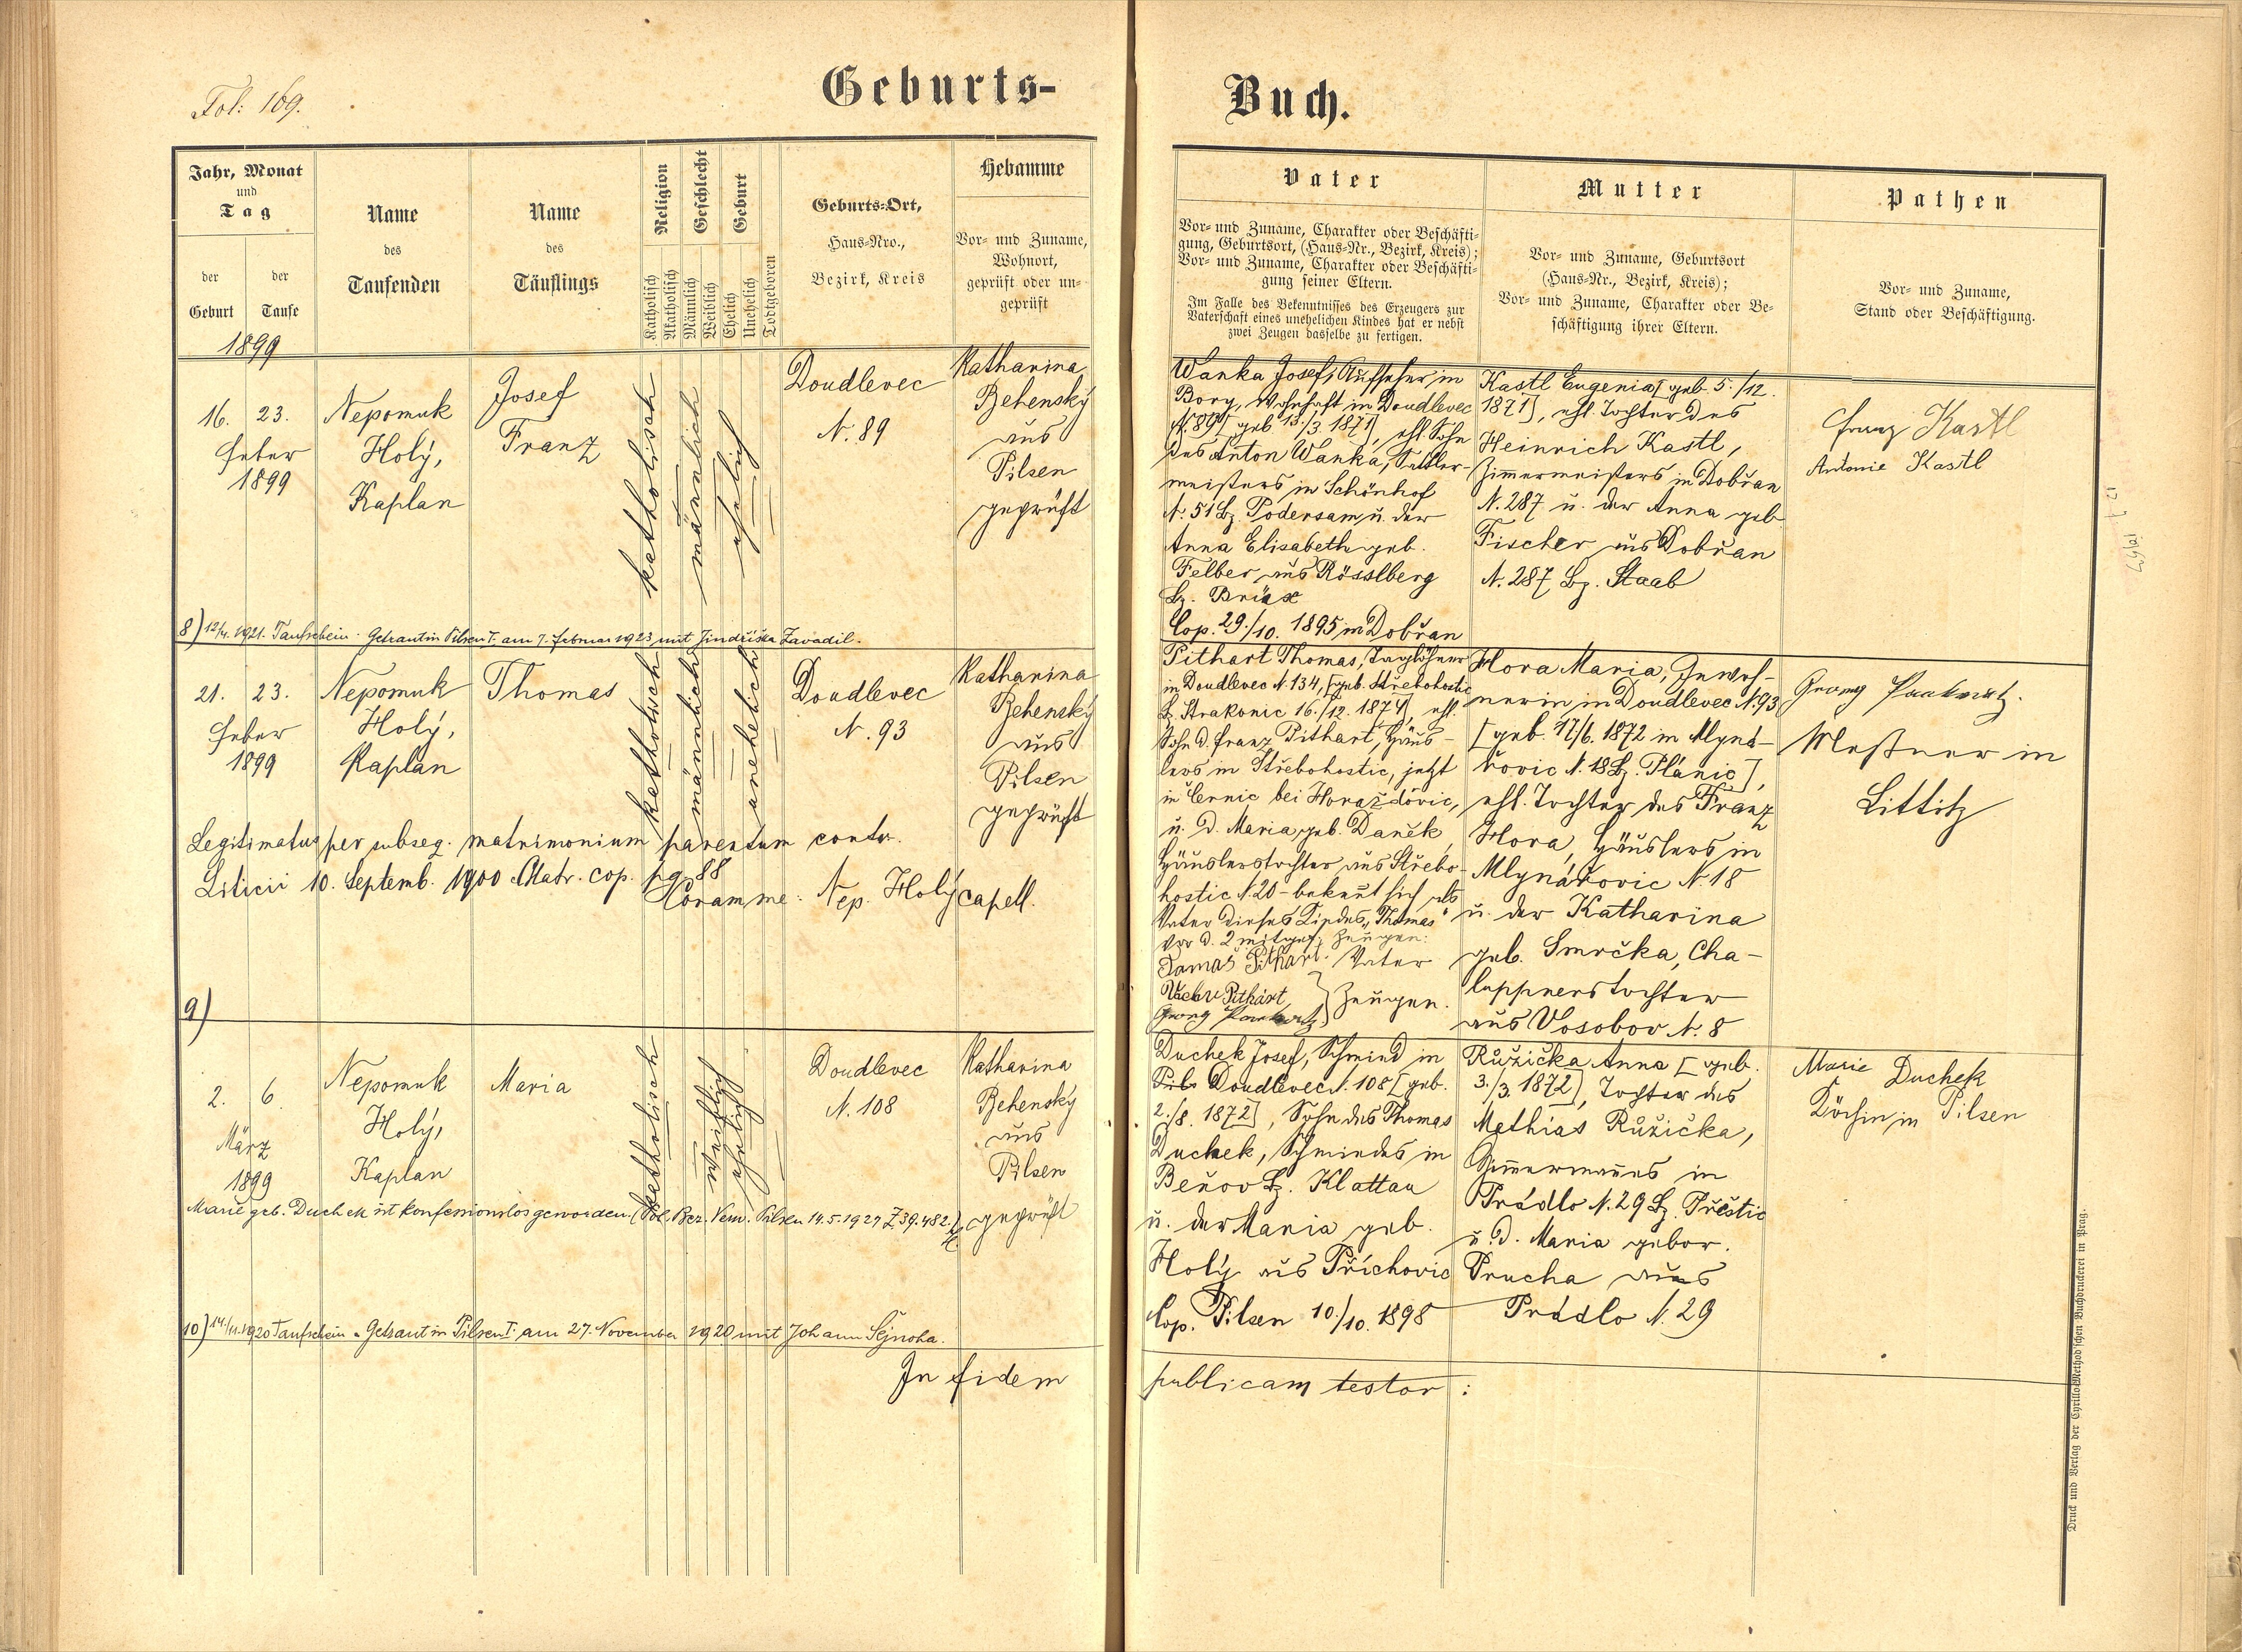 Fol: 169.
Geburts-
Buch.
Jahr, Monat
und
Tag
der
Geburt
der
Taufe
1899
Name
des
Taufenden
Name
des
Täuflings
Religion
Katholisch
Akatholisch
Geschlecht
Männlich
Weiblich
Geburt
Ehelich
Unehelich
Todtgeboren
Geburts-Ort,
Haus-Nro.,
Bezirk, Kreis
Hebamme
Vor- und Zuname,
Wohnort,
geprüft oder un-
geprüft
Vater
Vor- und Zuname, Charakter oder Beschäfti-
gung, Geburtsort, (Haus-Nr., Bezirk, Kreis);
Vor- und Zuname, Charakter oder Beschäfti-
gung seiner Eltern.
Im Falle des Bekenntnisses des Erzeugers zur
Vaterschaft eines unehelichen Kindes hat er nebst
zwei Zeugen dasselbe zu fertigen.
Mutter
Vor- und Zuname, Geburtsort
(Haus-Nr., Bezirk, Kreis);
Vor- und Zuname, Charakter oder Be-
schäftigung ihrer Eltern.
Pathen
Vor- und Zuname,
Stand oder Beschäftigung.
16. 23.
Feber
1899
Nepomuk
Holý,
Kaplan
Josef
Franz
katholisch
männlich
ehelich
Doudlevec
N. 89
Katharina
Behenský
aus
Pilsen
geprüft
Wanka Josef, Aufseher in
Bory, wohnhaft in Doudlevec
N. 89 [geb 13./3. 1871], ehl. Sohn
des Anton Wanka, Sattler-
meisters in Schönhof
N. 51 Bz. Podersam u. der
Anna Elisabeth geb.
Felber aus Rösslberg
Bz. Brüx
Cop. 29./10. 1895 in Dobřan
Kastl Eugenia [geb. 5./12.
1871], ehl. Tochter des
Heinrich Kastl,
Zimmermeisters in Dobřan
N. 287 u. der Anna geb
Fischer aus Dobřan
N. 287 Bz. Staab
Franz Kastl
Antonie Kastl
8) 12/4. 1921. Taufschein. Getraut in Pilsen I. am 7. Februar 1923 mit Jindřiška Zavadil.
21. 23.
Feber
1899
Nepomuk
Holý,
Kaplan
Thomas
katholisch
männlich
unehelich
Doudlevec
N. 93
Katharina
Behenský
aus
Pilsen
geprüft
Legitimatus per subseq. matrimonium parentum contr.
Liticii 10. Septemb. 1900 Matr. cop. pg. 88
Coram me: Nep. Holý capell.
9)
Pithart Thomas, Taglöhner
in Doudlevec N 134, [geb. Střebohostic
Bz. Strakonic 16./12. 1874], ehl.
Sohn d. Franz Pithart, Häus-
lers in Střebohostic, jetzt
in Černic bei Horažďovic,
u. d. Maria geb. Daněk,
Häuslerstochter aus Střebo-
hostic N. 20 - bekennt sich als
Vater dieses Kindes „Thomas"
vor d. 2 mitgef. Zeugen:
Tomáš Pithart Vater
Pithart
Georg
Zeugen.
Hora Maria, Inwoh-
nerin in Doudlevec N. 93
[geb. 17/6. 1872 in Mlyná-
řovic N. 18 Bz. Plánic],
ehl. Tochter des Franz
Hora, Häuslers in
Mlynářovic N. 18
u. der Katharina
geb. Smrčka, Cha-
luppnerstochter
aus Vosobov N. 8
Georg
Meßner in
Littitz
2. 6.
März
1899
Nepomuk
Holý,
Kaplan
Maria
katholisch
weiblich
ehelich
Doudlevec
N. 108
Katharina
Behenský
aus
Pilsen
geprüft
Marie geb. Duchek ist konfessionslos geworden. (Pol. Bez. Verw. Pilsen 14.5.1927 Z 39.482.)
Duchek Josef, Schmied in
Pils Doudlevec N. 108 [geb.
2./8. 1872], Sohn des Thomas
Duchek, Schmiedes in
Beňov Bz. Klattau
u. der Maria geb.
Holý aus Příchovic
Cop. Pilsen 10./10. 1898
Růžička Anna [geb.
3./3. 1872], Tochter des
Mathias Růžička,
Zimmermannes in
Prádlo N. 29 Bz. Přestic
u. d. Maria gebor.
Prucha aus
Prádlo N. 29
Marie Duchek
Köchin in Pilsen
10) 14./11.1920 Taufschein. Getraut in Pilsen I. am 27. November 1920 mit Johann Šejnoha.
In fidem
publicam testor:
Druck und Verlag der Cyrillo-Method'schen Buchdruckerei in Prag.